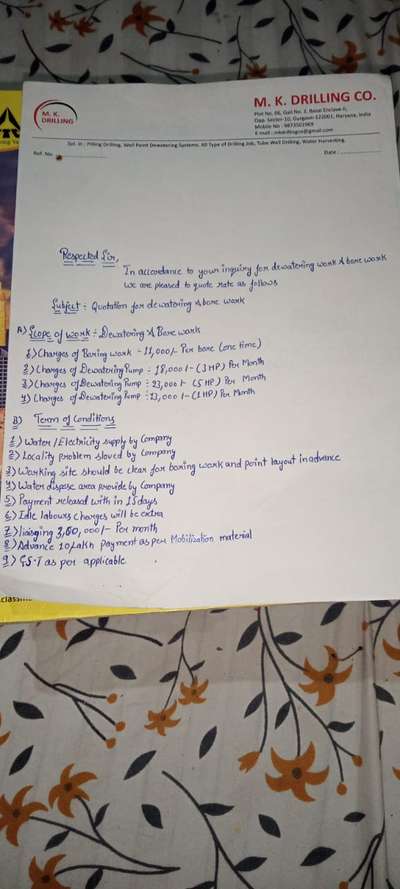 M. K.
DRILLING
M. K. DRILLING CO.
Plot No. 06, Gali No. 3, Basai Enclave-II,
Opp. Sector-10, Gurgaon-122001, Haryana, India
Mobile No : 9873501969
E-mail : mkdrillingco@gmail.com
Spl. in : Pilling Drilling, Well Point Dewatering Systems. All Type of Drilling Job, Tube Well Drilling, Water Harvesting.
Ref. No.
Date :
Respected Sir,
In accordance to your inquiry for dewatering work & bore work
we are pleased to quote rate as follows
Subject :- Quotation for dewatering & bore work
A) Scope of work :- Dewatering & Bore work
1) Charges of Boring work - 11,000/- Per bore (one time)
2) Charges of Dewatering Pump :- 18,000/- (3 HP) Per Month
3) Charges of Dewatering Pump :- 23,000/- (5 HP) Per Month
4) Charges of Dewatering Pump :- 13,000/- (1 HP) Per Month
B) Term of Conditions
1) Water / Electricity supply by Company
2) Locality Problem sloved by Company
3) Warking site should be clear for boring work and point layout in advance
4) Water dispose area provide by Company
5) Payment released with in 15 days
6) Idle labours charges will be extra
7) liaisging 3,50,000/- Per month
8) Advance 10/Lakh payment as per Mobilization material
9) G.S.T as per applicable